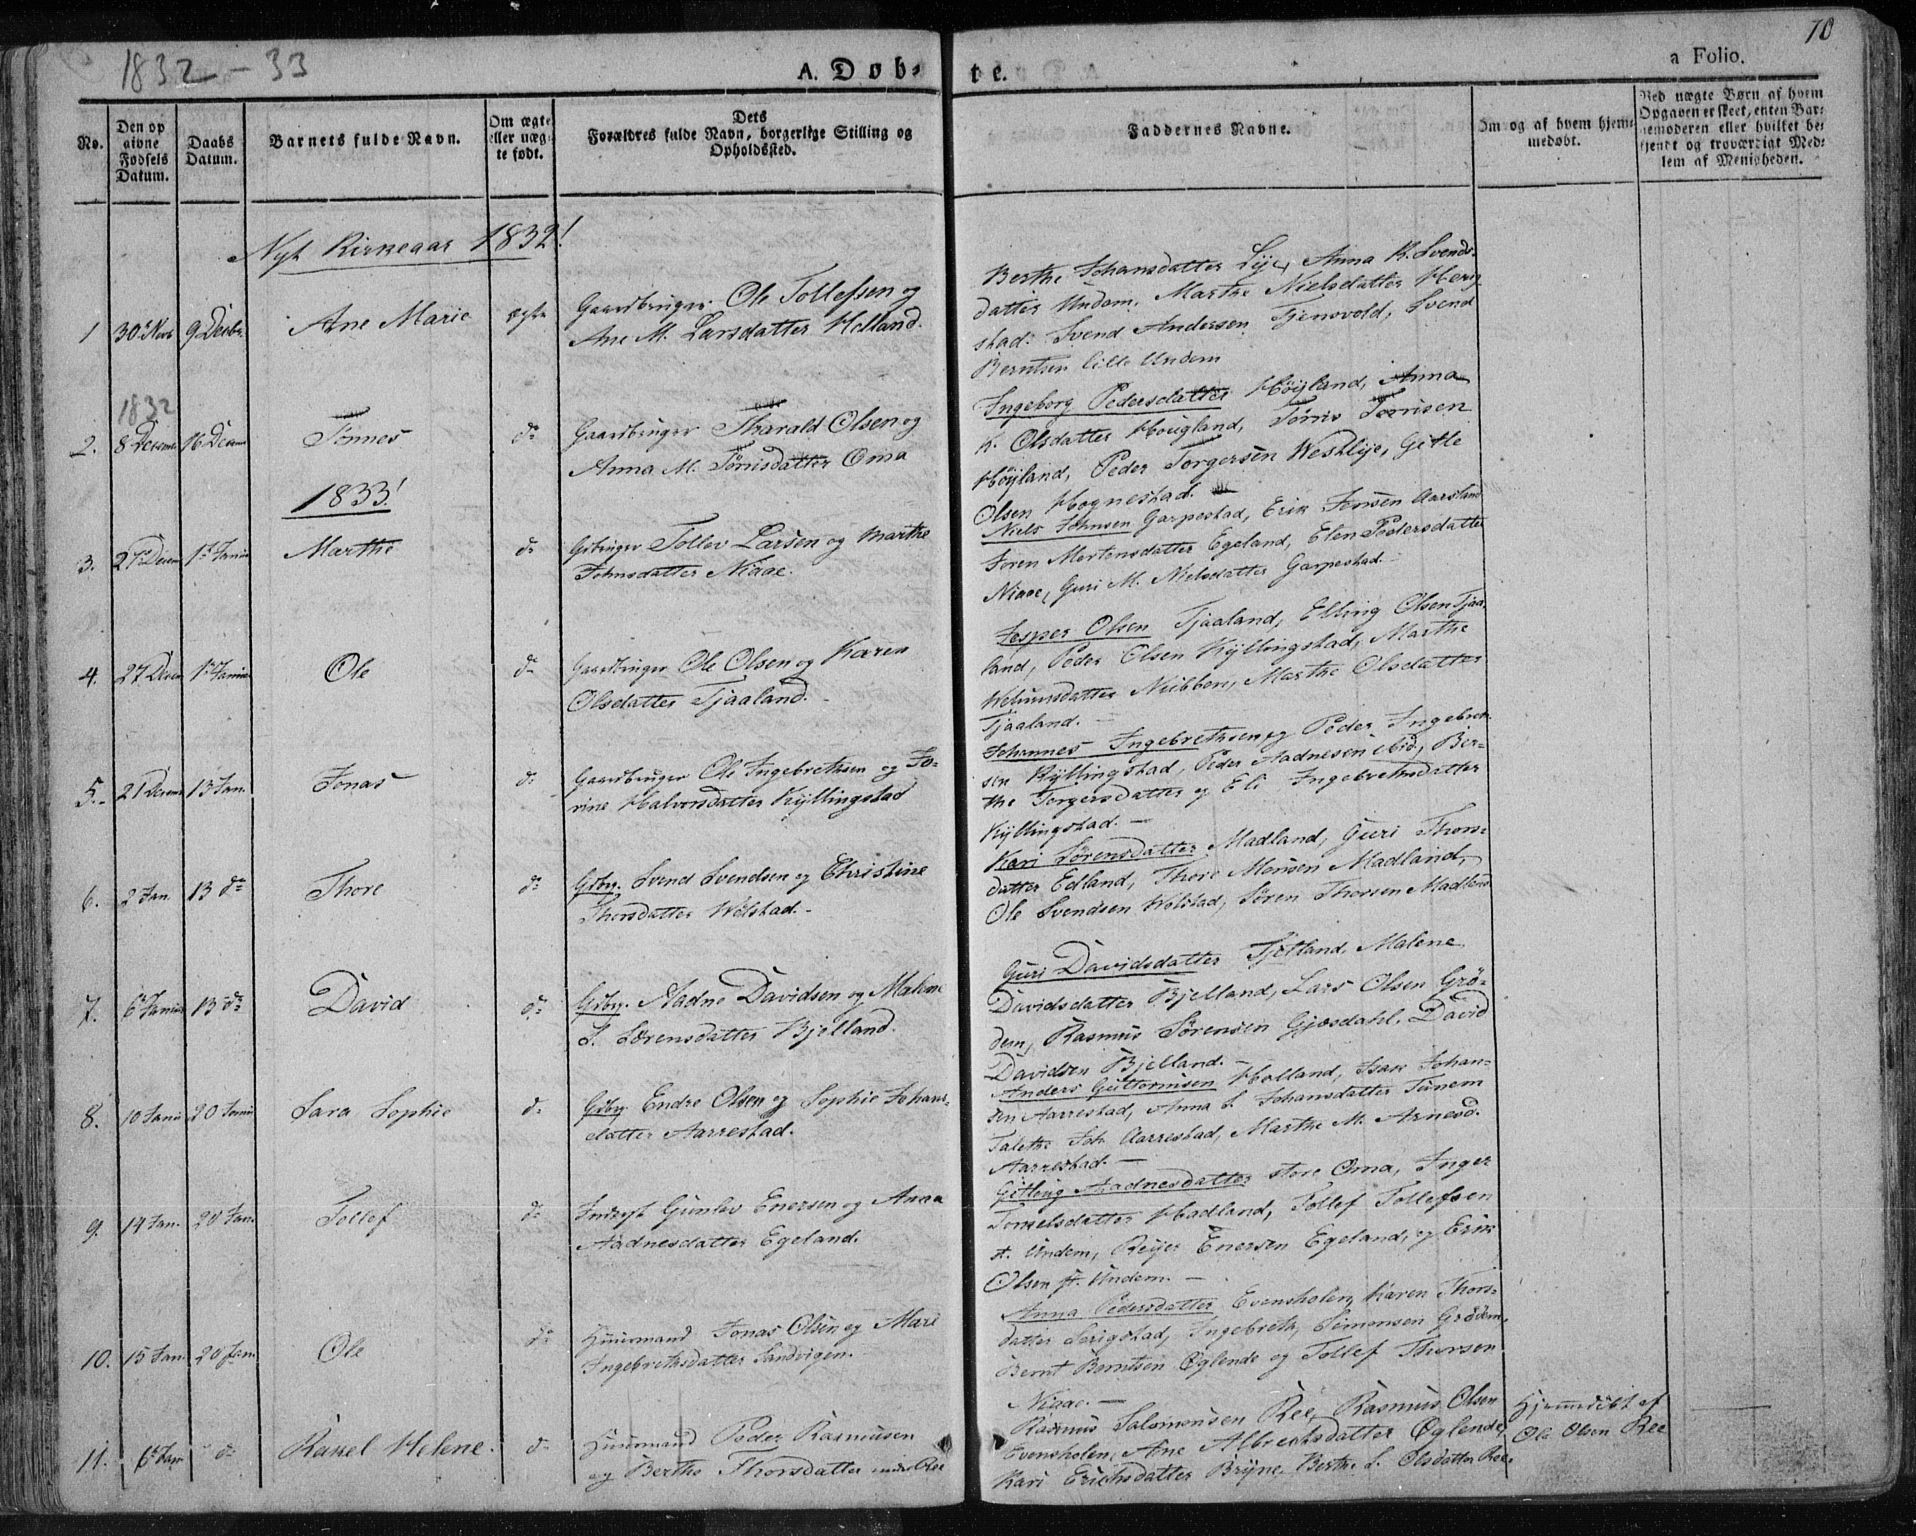 1832-33
A. Døb-
te.
70
a Folio.
No.
Den op
givne
Fødsels
Datum.
Daabs
Datum.
Barnets fulde Navn.
Om ægte
eller uæg-
te født.
Dets
Forældres fulde Navn, borgerlige Stilling og
Opholdssted.
Faddernes Navne.
Om og af hvem hjem-
medøbt.
Ved uægte Børn af hvem
Opgaven er skeet, enten Bar-
nemoderen eller hvilket be-
kjendt og troværdigt Med-
lem af Menigheden.
Nyt Kirkeaar 1832!
1 30 9 Decbr. Ane Marie ægte
Gaardbruger Ole Tollefsen og
Ane M. Larsdatter Helland.
Berthe Johansdatter Lye, Anna K. Svends-
datter Undem, Marthe Nielsdatter Herig-
stad. Svend Andersen Tjensvold, Svend
Berntsen lille Undem
1832
2. 8 Decem 16 Decem Tønnes do
Gaardbruger Tharald Olsen og
Anna M. Tørrisdatter Oma
Ingeborg Pedersdatter Høyland, Anna
K. Olsdatter Hougland, Tørris Tørrisen
Høyland, Peder Torgersen Westlye, Gitle
Olsen Hognestad.
1833!
3. 27 Decem 1 Januar Marthe do
Gbruger Tollev Larsen og Marthe
Johnsdatter Niaae.
Niels Johnsen Garpestad, Erik Jensen Aarsland
Søren Mortensdatter Egeland, Elen Pedersdatter
Niaae, Guri M. Nielsdatter Garpestad.
4. 27 Decem 1 Januar Ole do
Gaardbruger Ole Olsen og Karen
Olsdatter Tjaaland. -
Jesper Olsen Tjaaland, Elling Olsen Tjaa-
land, Peder Olsen Kyllingstad, Marthe
Nubben, Marthe Olsdatter
Tjaaland. -
5. 21 Decem 13 Jan. Jonas do
Gaardbruger Ole Ingebrethsen og Jo-
rine Halvorsdatter Kyllingstad
Johannes Ingebrethsen og Peder Ingebret-
sen Kyllingstad, Peder Aadnesen ibid, Ber-
the Torgersdatter og Eli Ingebretsdatter
Kyllingstad. -
6. 2 Jan. 13 do Thore do
Gdbr. Svend Svendsen og Christine
Thorsdatter Wølstad. -
Kari Sørensdatter Madland, Guri Thors-
datter Edland, Thore Monsen Madland,
Ole Svendsen Wølstad, Søren Thorsen Madland
7. 6 Januar 13 do David do
Gdbr. Aadne Davidsen og Malene
S. Sørensdatter Bjelland.
Guri Davidsdatter Tjetland, Malene
Davidsdatter Bjelland, Lars Olsen Grø-
dem, Rasmus Sørensen Gjesdahl, David
Davidsen Bjelland. -
8. 10 Janu 20 Janu Sara Sophie do
Gdbr. Endre Olsen og Sophie Johans-
datter Aarrestad.
Anders Guttormsen Holland, Isak Johan-
sen Aarrestad, Anna S. Johansdatter Tunem
Talette Joh. Aarrestad, Marthe M. Arnesd.
Aarrestad. -
9. 14 Jan. 20 Jan. Tollef do
Inderst Gunlev Enersen og Anna
Aadnesdatter Egeland.
Gitling Aadnesdatter store Oma, Inger
Hadland, Tollef Tollefsen
st. Undem, Reyer Enersen Egeland, og Erik
Olsen st. Undem. -
10. 15 Jan. 20 Jan. Ole do
Huusmand Jonas Olsen og Mari
Ingebrethsdatter Sandvigen.
Anna Pedersdatter Evensholen, Karen Thors-
datter Serigstad, Ingebreth Simonsen Grødem,
Bernt Berntsen Øglende og Tollef Thorsen
Niaae. -
11. 6 Jan do Rakel Helene. do
Huusmand Peder Rasmusen
og Berthe Thorsdatter under Ree
Rasmus Salomonsen Ree, Rasmus Olsen
Evensholen, Ane Albrechsdatter Øglende,
Kari Erichsdatter Bryne, Berthe S. Olsdatter Ree.
Hjemmedøbt af
Ole Olsen Ree